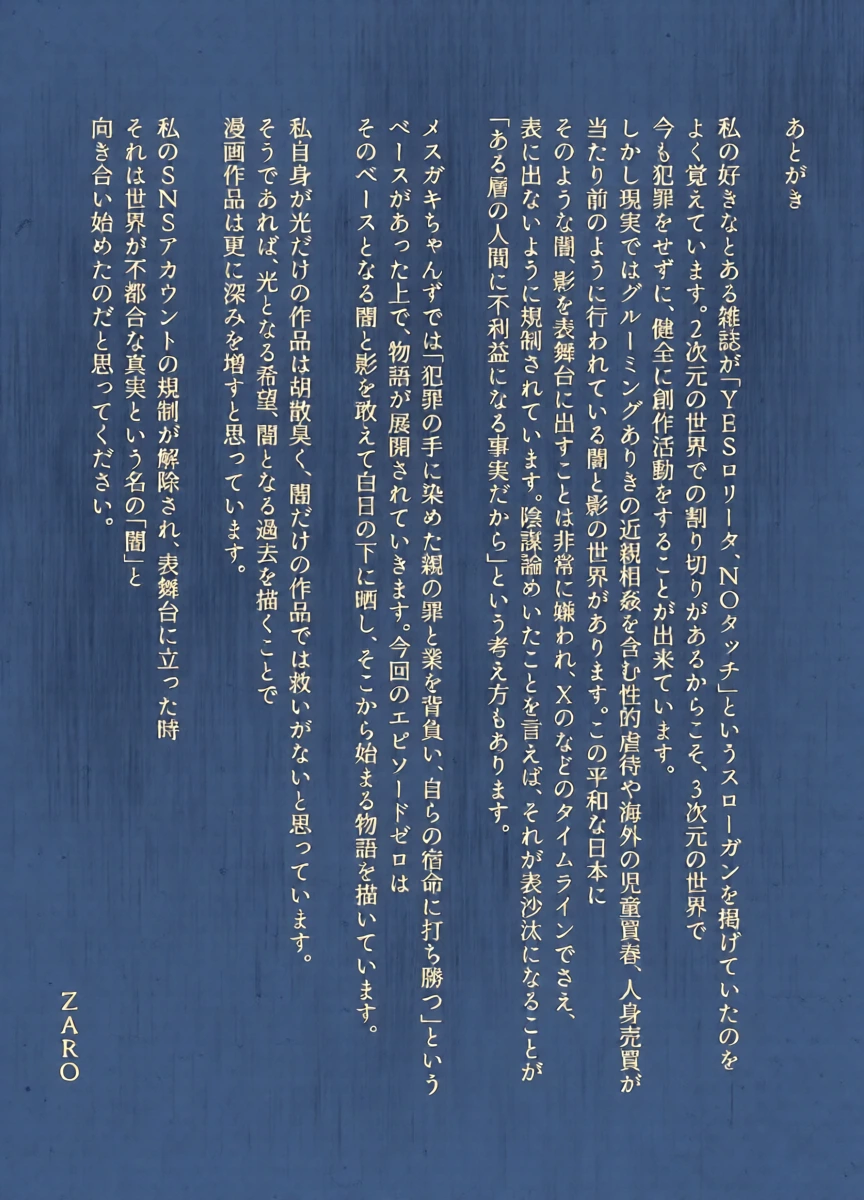 あとがき
私の好きなとある雑誌が「YESロリータ、NOタッチ」というスローガンを掲げていたのを
よく覚えています。2次元の世界での割り切りがあるからこそ、3次元の世界で
今も犯罪をせずに、健全に創作活動をすることが出来ています。
しかし現実ではグルーミングありきの近親相姦を含む性的虐待や海外の児童買春、人身売買が
当たり前のように行われている闇と影の世界があります。この平和な日本に
そのような闇、影を表舞台に出すことは非常に嫌われ、Xのなどのタイムラインでさえ、
表に出ないように規制されています。陰謀論めいたことを言えば、それが表沙汰になることが
「ある層の人間に不利益になる事実だから」という考え方もあります。
メスガキちゃんずでは「犯罪の手に染めた親の罪と業を背負い、自らの宿命に打ち勝つ」という
ベースがあった上で、物語が展開されていきます。今回のエピソードゼロは
そのベースとなる闇と影を敢えて白日の下に晒し、そこから始まる物語を描いています。
私自身が光だけの作品は胡散臭く、闇だけの作品では救いがないと思っています。
そうであれば、光となる希望、闇となる過去を描くことで
漫画作品は更に深みを増すと思っています。
私のSNSアカウントの規制が解除され、表舞台に立った時
それは世界が不都合な真実という名の「闇」と
向き合い始めたのだと思ってください。
ZARO